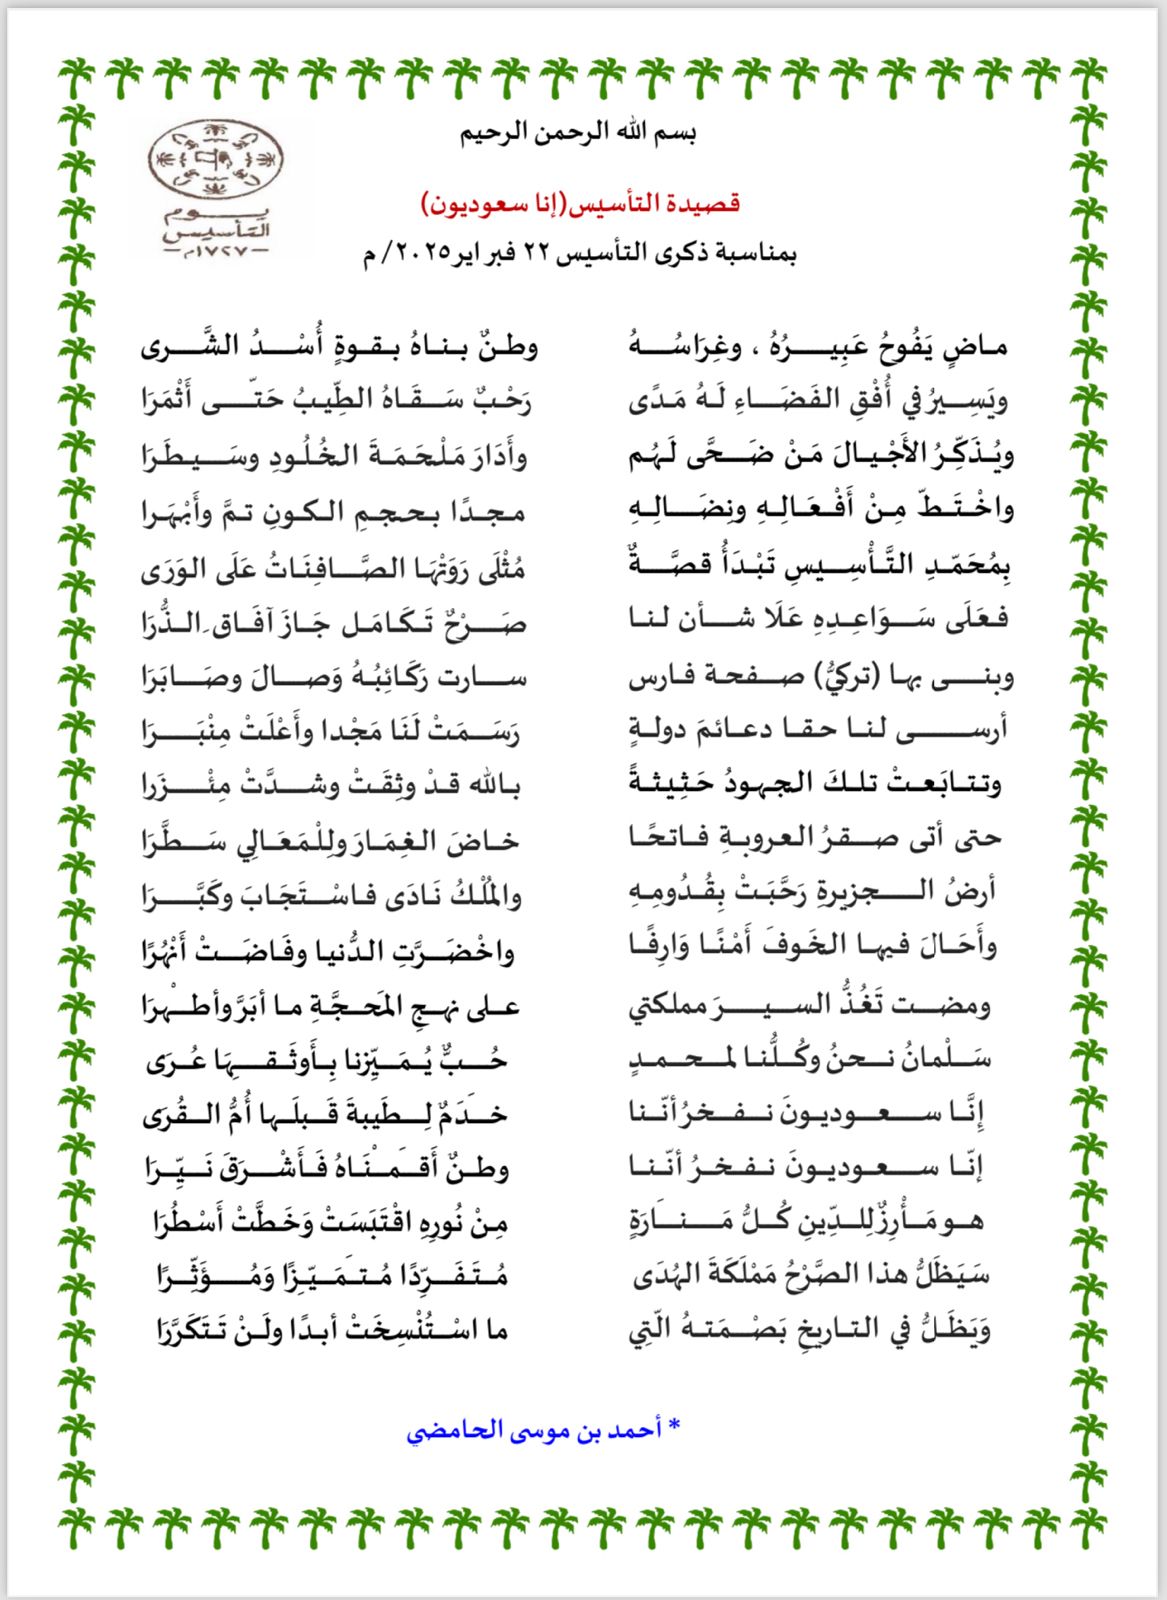 بسم الله الرحمن الرحيم
يوم
التأسيس
١٧٢٧م
قصيدة التأسيس(إنا سعوديون)
بمناسبة ذكرى التأسيس ٢٢ فبراير٢٠٢٥/ م
ماضٍ يَفُوحُ عَبِيرُهُ ، وغِرَاسُهُ وطنٌ بناهُ بقوةٍ أُسْدُ الشَّرى
ويَسِيرُ في أُفْقِ الفَضَاءِ لَهُ مَدًى رَحْبٌ سَقَاهُ الطِّيبُ حَتّى أَثْمَرَا
ويُذَكِّرُ الأَجْيالَ مَنْ ضَحَّى لَهُم وأَدَارَ مَلْحَمَةَ الخُلُودِ وسَيطَرَا
واخْتَطّ مِنْ أَفْعَالِهِ ونِضَالِهِ مجدًا بحجمِ الكونِ تمَّ وأَبْهَرا
بِمُحَمّدِ التَّأْسِيسِ تَبْدَأُ قصَّةٌ مُثْلَى رَوَتْهَا الصَّافِنَاتُ عَلَى الوَرَى
فعَلَى سَوَاعِدِهِ عَلَا شأن لنا صَرْحٌ تَكَامَل جَازَ آفَاق ِالذُّرَا
وبنى بها (تركيُّ) صفحة فارس سارت رَكَائِبُهُ وَصالَ وصَابَرَا
أرسى لنا حقا دعائمَ دولةٍ رَسَمَتْ لَنَا مَجْدا وأَعْلَتْ مِنْبَرَا
وتتابَعتْ تلكَ الجهودُ حَثِيثةً بالله قدْ وثِقَتْ وشدَّتْ مِئْزَرا
حتى أتى صقرُ العروبةِ فاتحًا خاضَ الغِمَارَ ولِلْمَعَالِي سَطَّرَا
أرضُ الجزيرةِ رَحَّبَتْ بِقُدُومِهِ والمُلْكُ نَادَى فاسْتَجَابَ وكَبَّرَا
وأَحَالَ فيها الخَوفَ أَمْنًا وَارِفًا واخْضَرَّتِ الدُّنيا وفَاضَتْ أَنْهُرًا
ومضت تَغُذُّ السيرَ مملكتي على نهجِ المَحجَّةِ ما أبَرَّ وأطهْرَا
سَلْمانُ نحنُ وكُلُّنا لمحمدٍ حُبٌّ يُمَيِّزنا بِأَوثَقِهَا عُرَى
إِنَّا سعوديونَ نفخرُ أنّنا خدَمٌ لِطَيبةَ قَبلَها أُمُّ القُرَى
إنّا سعوديونَ نفخرُ أنّنا وطنٌ أَقمْنَاهُ فَأَشْرَقَ نَيِّرَا
هو مَأْرِزٌ للدِّينِ كُلُّ مَنارَةٍ مِنْ نُورِهِ اقْتَبَسَتْ وَخَطَّتْ أَسْطُرَا
سَيَظَلُّ هذا الصَّرْحُ مَمْلَكَةَ الهُدَى مُتَفَرِّدًا مُتمَيِّزًا وَمُؤَثِّرًا
وَيَظَلُّ في التاريخِ بَصْمَتهُ الّتِي ما اسْتُنْسِخَتْ أبدًا ولَنْ تَتَكَرَّرَا
* أحمد بن موسى الحامضي